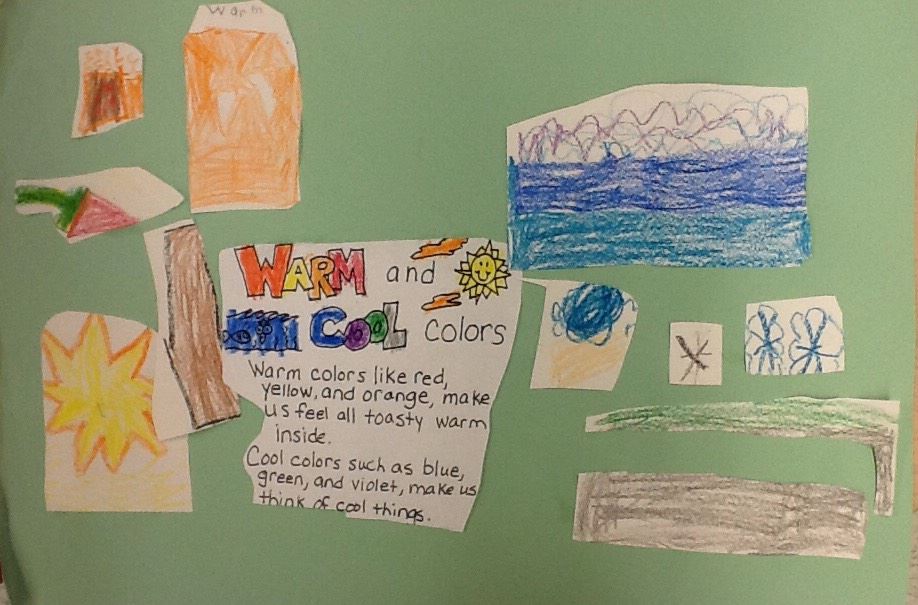 Warm
WARM and
COOL Colors
Warm colors like red,
yellow, and orange, make
us feel all toasty warm
inside.
Cool colors such as blue,
green, and violet, make us
think of cool things.